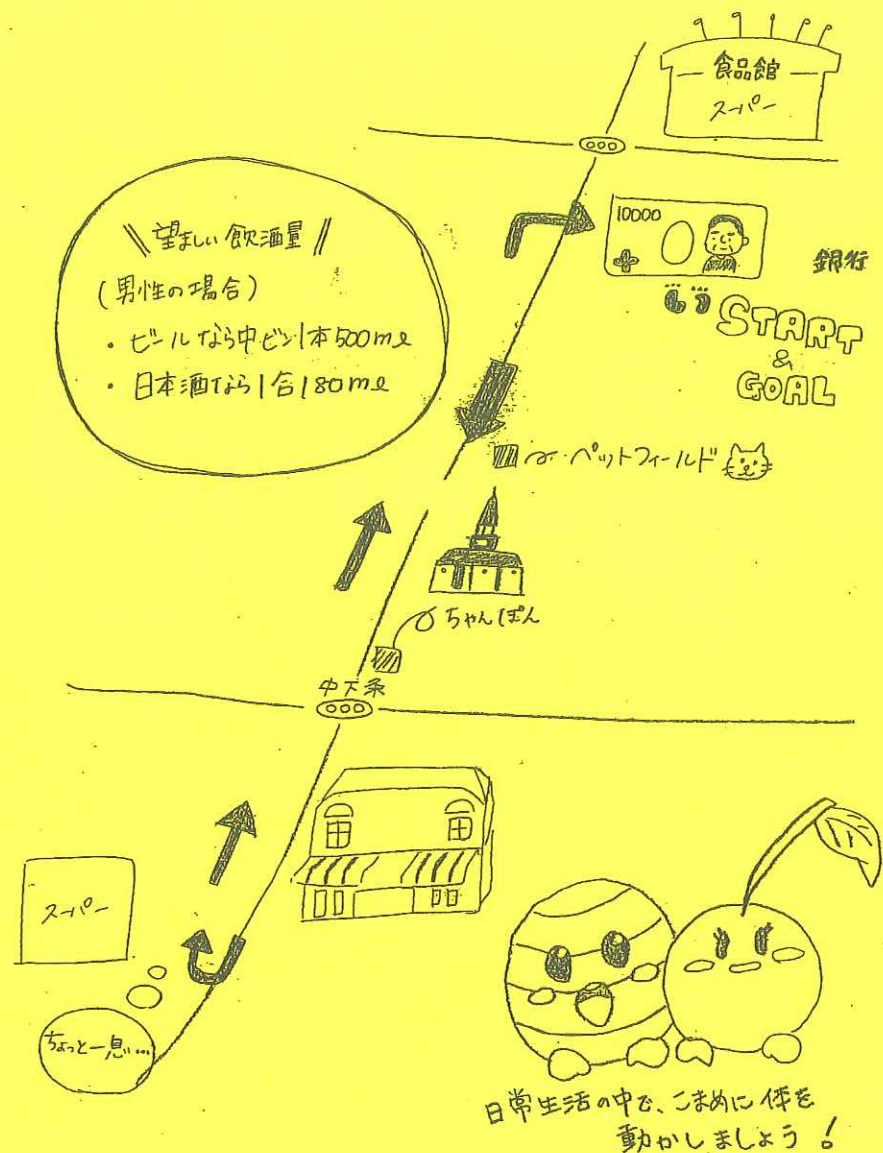 食品館
スーパー
\\ 望ましい飲酒量 //
(男性の場合)
・ビールなら中ビン1本500ml
・日本酒なら1合180ml
10000
銀行
START
&
GOAL
ペットフィールド
ちゃんぽん
中下条
スーパー
ちょっと一息…
日常生活の中で、こまめに体を
動かしましょう!